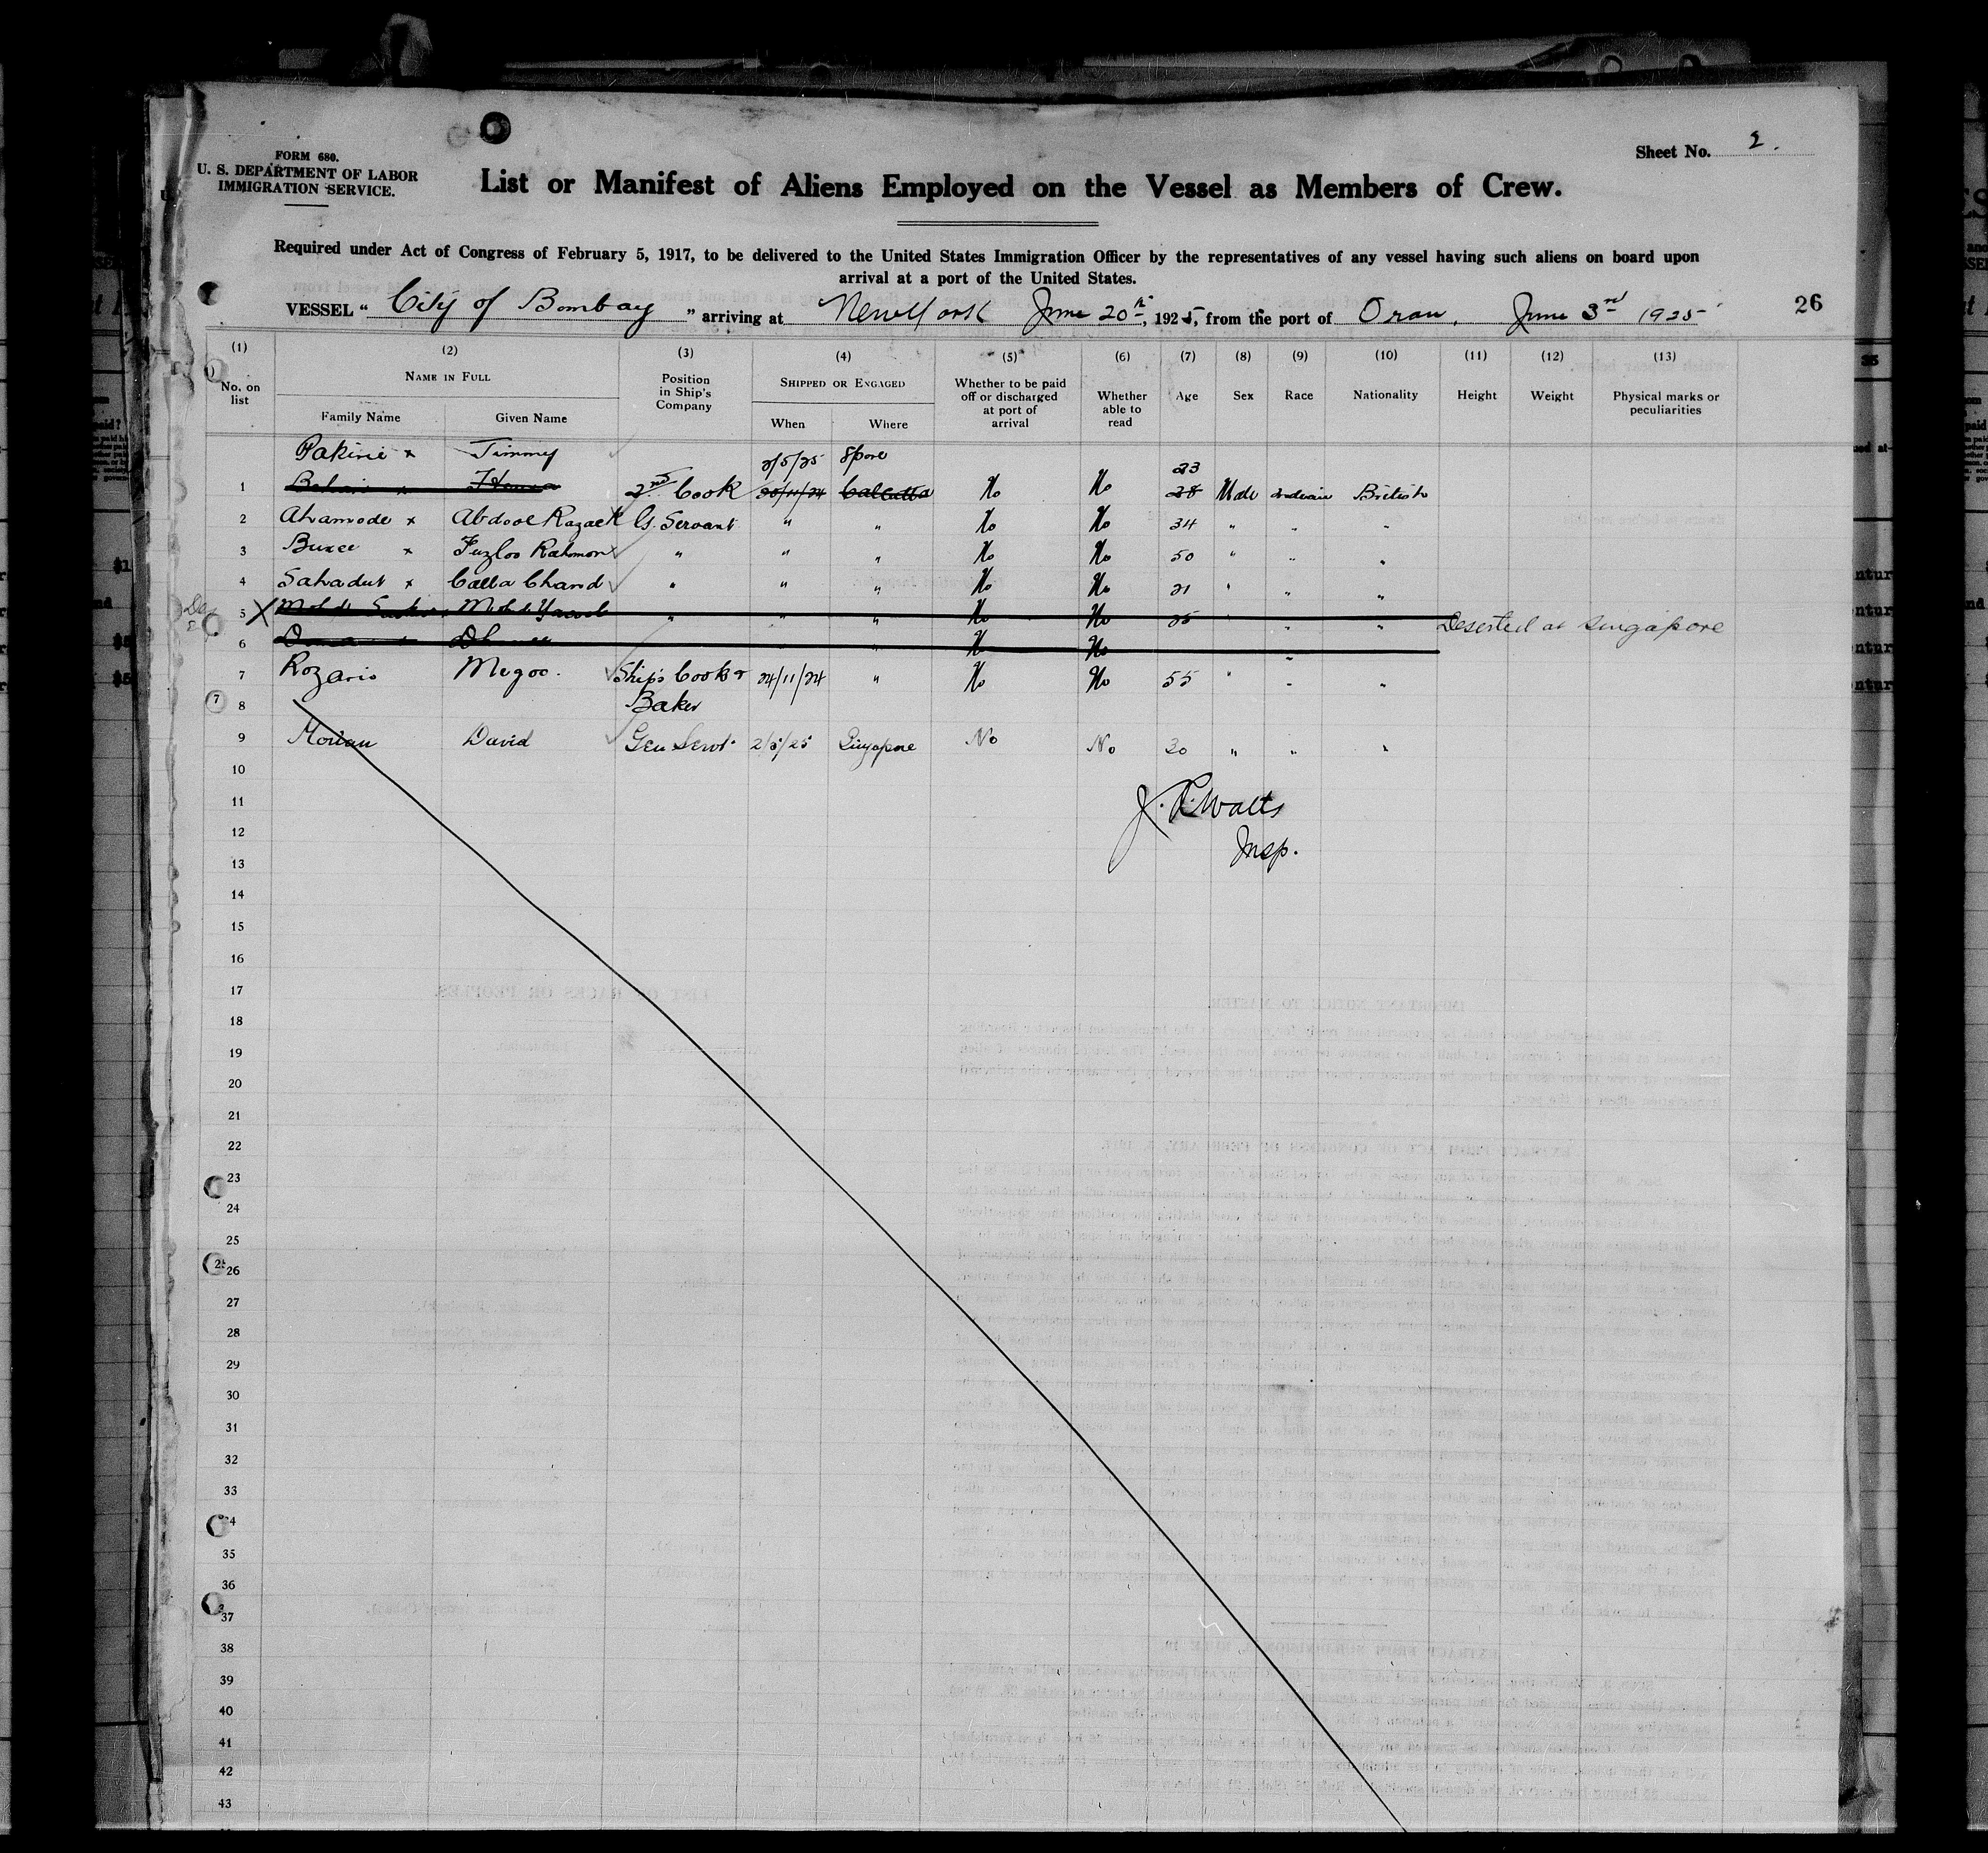 FORM 680.
U. S. DEPARTMENT OF LABOR
IMMIGRATION SERVICE.
Sheet No. 2.
List or Manifest of Aliens Employed on the Vessel as Members of Crew.
Required under Act of Congress of February 5, 1917, to be delivered to the United States Immigration Officer by the representatives of any vessel having such aliens on board upon
arrival at a port of the United States.
VESSEL " City of Bombay " arriving at New York June 20th, 1925, from the port of Oran, June 3rd 1925
26
(1) (2) (3) (4) (5) (6) (7) (8) (9) (10) (11) (12) (13)
No. on list
NAME IN FULL
Family Name Given Name
Position in Ship's Company
SHIPPED OR ENGAGED
When Where
Whether to be paid off or discharged at port of arrival
Whether able to read
Age Sex Race Nationality Height Weight
Physical marks or peculiarities
Pakirie x Jimmy 2/5/25 Spore 23
1 2nd Cook 20/11/24 Calcutta No No 28 Male Indian British
2 Ahamode x Abdool Razack G. Servant " " No No 34 " " "
3 Buxee x Fuzloo Rahmon " " " No No 50 " " "
4 Sahadut x Calla Chand " " " No No 21 " " "
5 X " " " No No 25 " " Deserted at Singapore
6 " No No "
7 Rozario Megoo. Ship's Cook & 24/11/24 " No No 55 " " "
8 Baker
9 David Gen Servt. 2/5/25 Singapore No No 30 " " "
10
11 J. R. Watts
12
13 Insp.
14
15
16
17
18
19
20
21
22
23
24
25
26
27
28
29
30
31
32
33
34
35
36
37
38
39
40
41
42
43